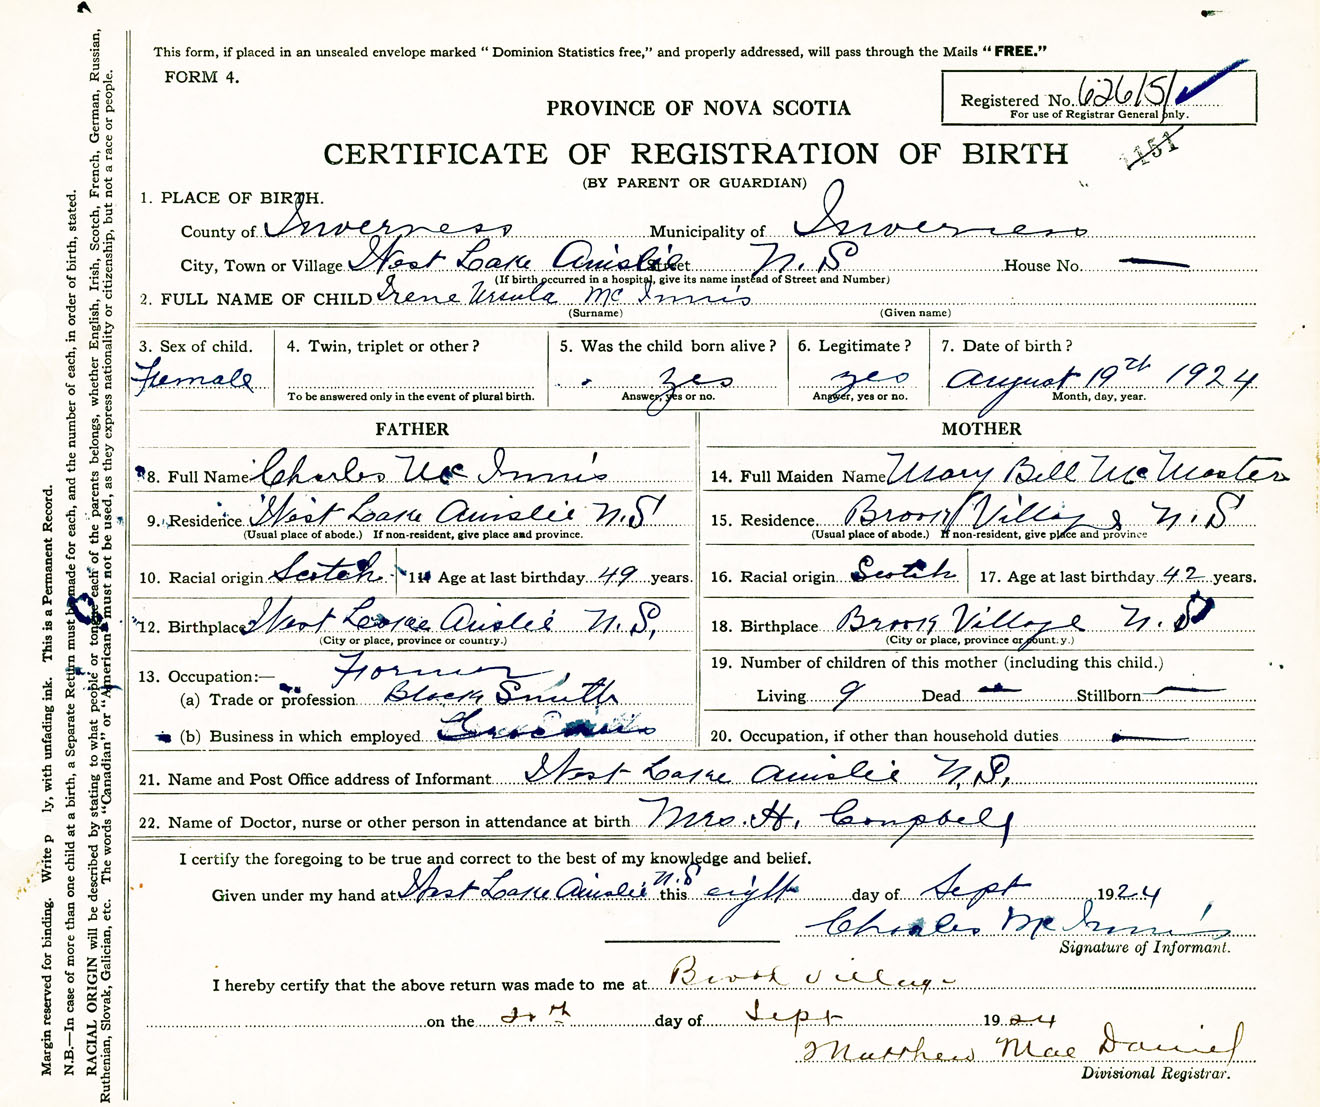 This form, if placed in an unsealed envelope marked "Dominion Statistics free," and properly addressed, will pass through the Mails "FREE."
FORM 4.
Registered No. 62615
For use of Registrar General only.
1151
PROVINCE OF NOVA SCOTIA
CERTIFICATE OF REGISTRATION OF BIRTH
(BY PARENT OR GUARDIAN)
1. PLACE OF BIRTH.
County of Inverness Municipality of Inverness
City, Town or Village West Lake Ainslie Street N.S House No. —
(If birth occurred in a hospital, give its name instead of Street and Number)
2. FULL NAME OF CHILD Irene Ursula Mc Innis
(Surname) (Given name)
3. Sex of child. Female
4. Twin, triplet or other?
To be answered only in the event of plural birth.
5. Was the child born alive? yes
Answer, yes or no.
6. Legitimate? yes
Answer, yes or no.
7. Date of birth? August 19th 1924
Month, day, year.
FATHER
8. Full Name Charles Mc Innis
9. Residence West Lake Ainslie N.S
(Usual place of abode.) If non-resident, give place and province.
10. Racial origin Scotch 11. Age at last birthday 49 years.
12. Birthplace West Lake Ainslie N.S.
(City or place, province or country.)
13. Occupation:— Farmer
(a) Trade or profession Black Smith
(b) Business in which employed
MOTHER
14. Full Maiden Name Mary Bell Mc Master
15. Residence Brook Village N.S
(Usual place of abode.) If non-resident, give place and province
16. Racial origin Scotch 17. Age at last birthday 42 years.
18. Birthplace Brook Village N.S
(City or place, province or country.)
19. Number of children of this mother (including this child.)
Living 9 Dead — Stillborn —
20. Occupation, if other than household duties —
21. Name and Post Office address of Informant West Lake Ainslie N.S.
22. Name of Doctor, nurse or other person in attendance at birth Mrs. H. Campbell
I certify the foregoing to be true and correct to the best of my knowledge and belief.
Given under my hand at West Lake Ainslie N.S this eight day of Sept 1924
Charles Mc Innis
Signature of Informant.
I hereby certify that the above return was made to me at Brook Village
on the day of Sept 1924
Matthew Mac Daniel
Divisional Registrar.
Margin reserved for binding. Write p ly, with unfading ink. This is a Permanent Record.
N.B.—In case of more than one child at a birth, a Separate Return must be made for each, and the number of each, in order of birth, stated.
RACIAL ORIGIN will be described by stating to what people or tongue each of the parents belongs, whether English, Irish, Scotch, French, German, Russian,
Ruthenian, Slovak, Galician, etc. The words "Canadian" or "American" must not be used, as they express nationality or citizenship, but not a race or people.